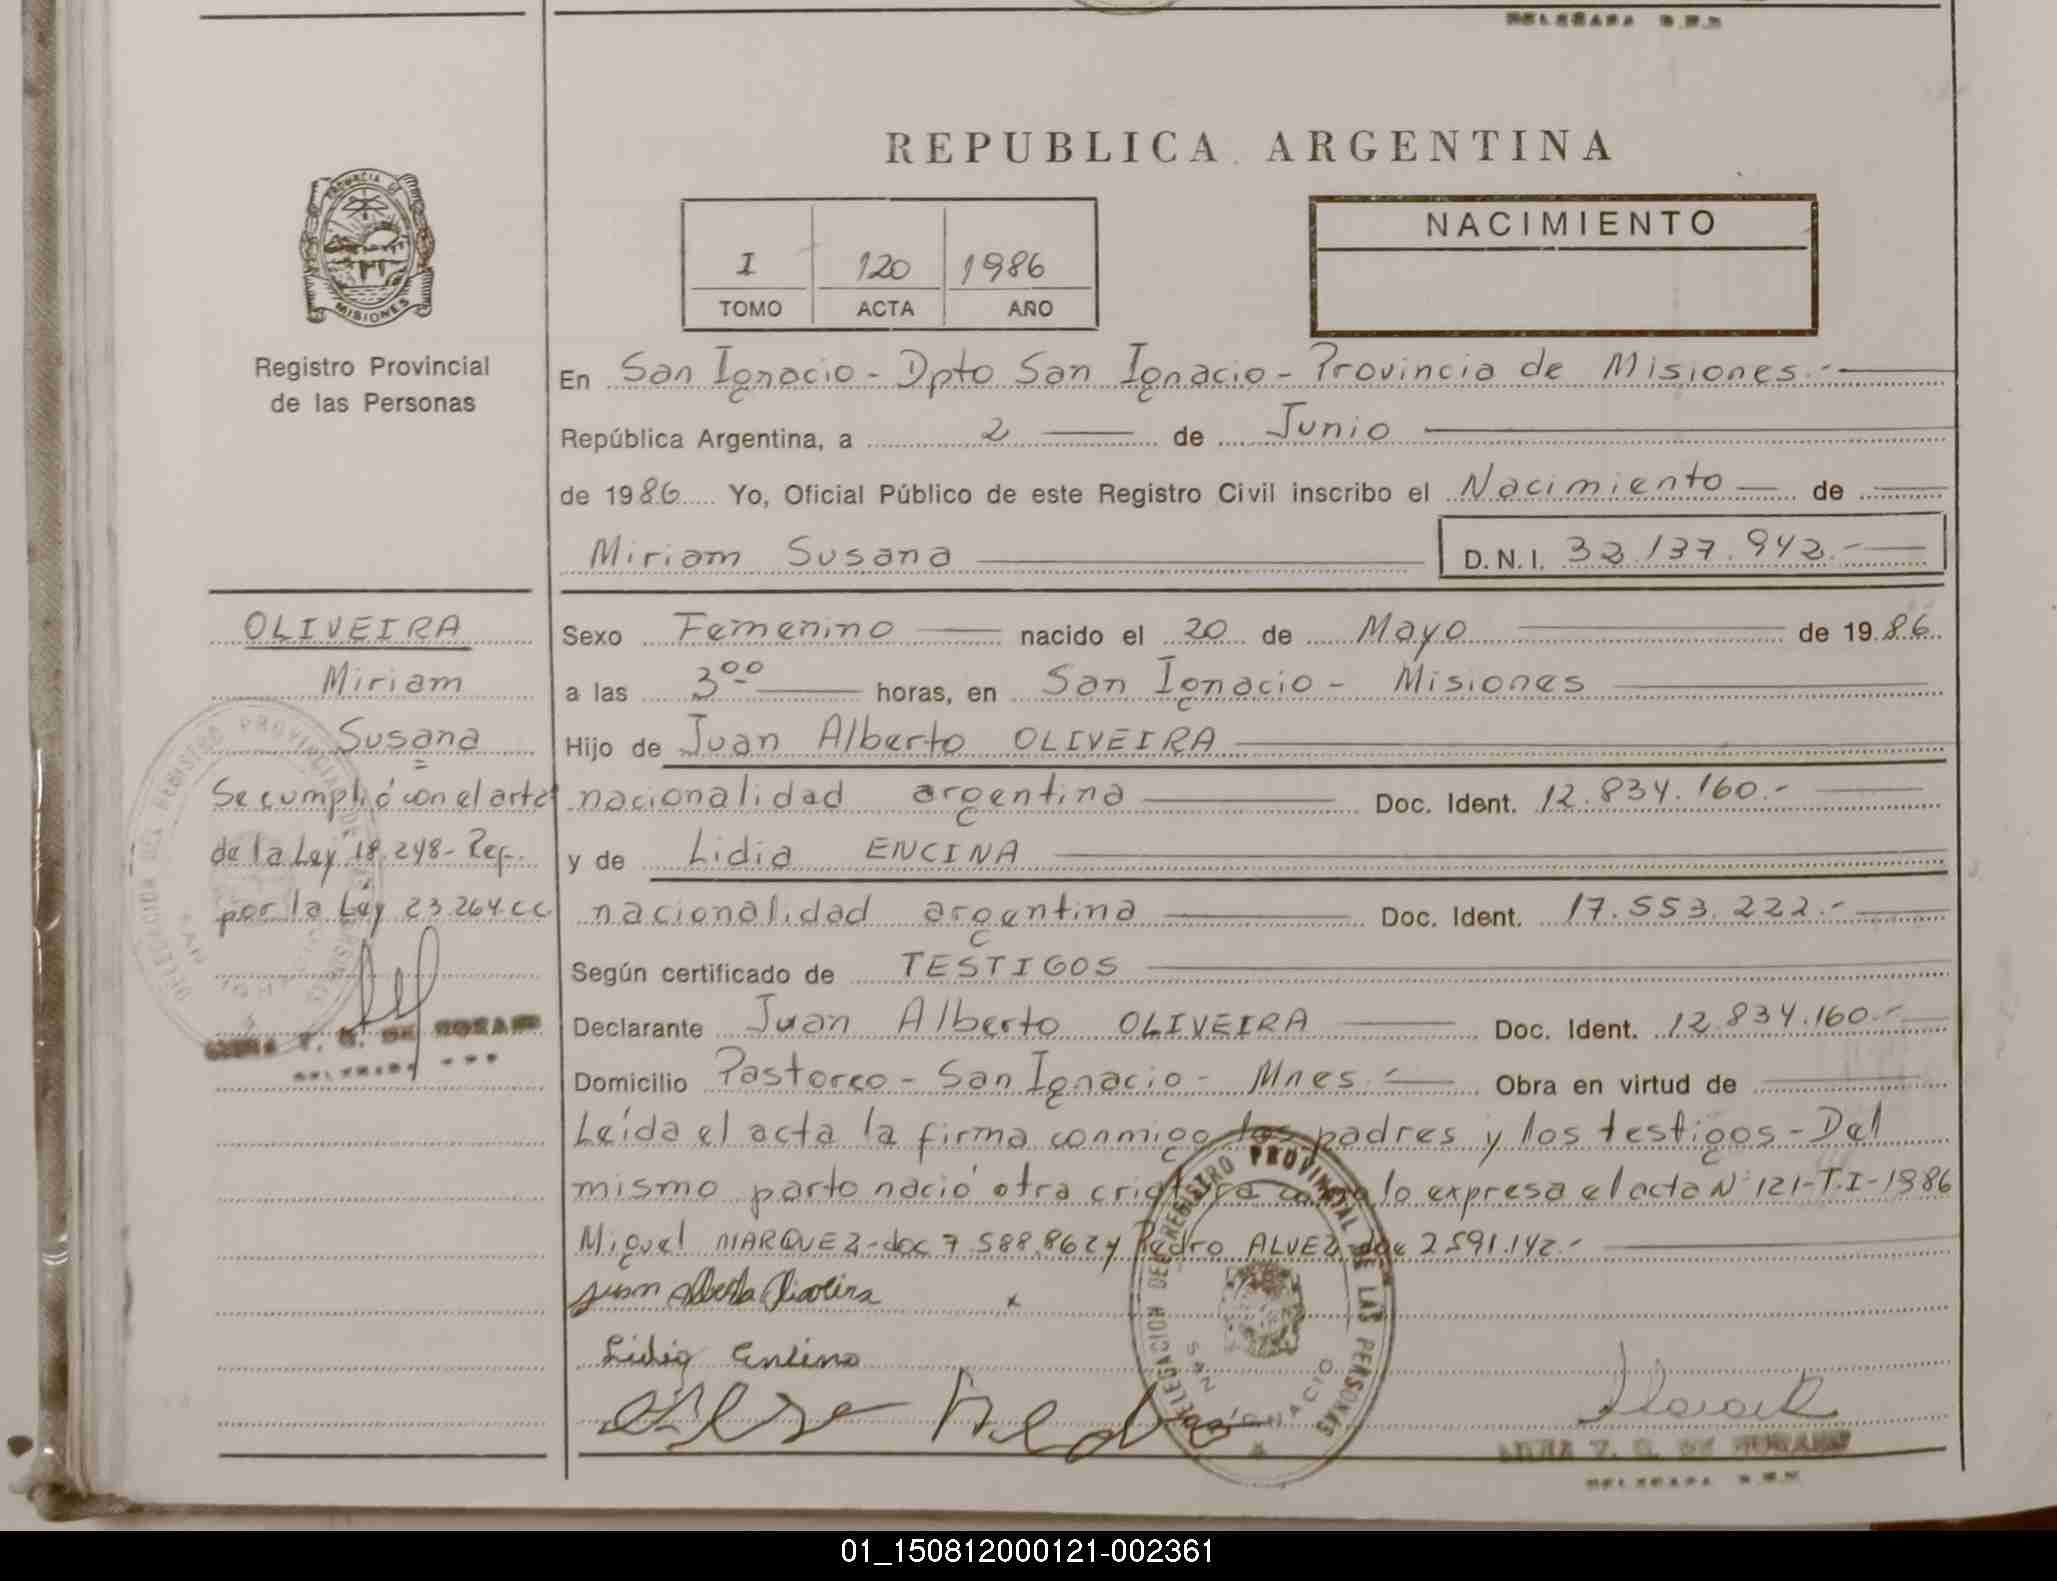 DELEGADA
REPUBLICA ARGENTINA
PROVINCIA DE
MISIONES
Registro Provincial
de las Personas
I 120 1986
TOMO ACTA AÑO
NACIMIENTO
En San Ignacio - Dpto San Ignacio - Provincia de Misiones.-
República Argentina, a 2 de Junio
de 1986 Yo, Oficial Público de este Registro Civil inscribo el Nacimiento de
Miriam Susana D.N.I. 32.137.942.-
OLIVEIRA
Miriam
Susana
Se cumplió con el art 2º
de la Ley 18.248- Ref.
por la Ley 23.264 CC
DELEGACION DEL REGISTRO PROVINCIAL DE LAS PERSONAS
SAN IGNACIO
DELEGADA
Sexo Femenino nacido el 20 de Mayo de 1986
a las 3⁰⁰ horas, en San Ignacio - Misiones
Hijo de Juan Alberto OLIVEIRA
nacionalidad argentina Doc. Ident. 12.834.160.-
y de Lidia ENCINA
nacionalidad argentina Doc. Ident. 17.553.222.-
Según certificado de TESTIGOS
Declarante Juan Alberto OLIVEIRA Doc. Ident. 12.834.160.-
Domicilio Pastoreo - San Ignacio - Mnes.- Obra en virtud de
Leída el acta la firma conmigo los padres y los testigos - Del
mismo parto nació otra criatura como lo expresa el acta Nº 121-T.I-1986
Miguel MARQUEZ - doc 7.588.862 y Pedro ALVEZ doc 2.591.142.-
Juan Alberto Oliveira x
Lidia Encina
DELEGACION DEL REGISTRO PROVINCIAL DE LAS PERSONAS
SAN IGNACIO
DELEGADA
01_150812000121-002361